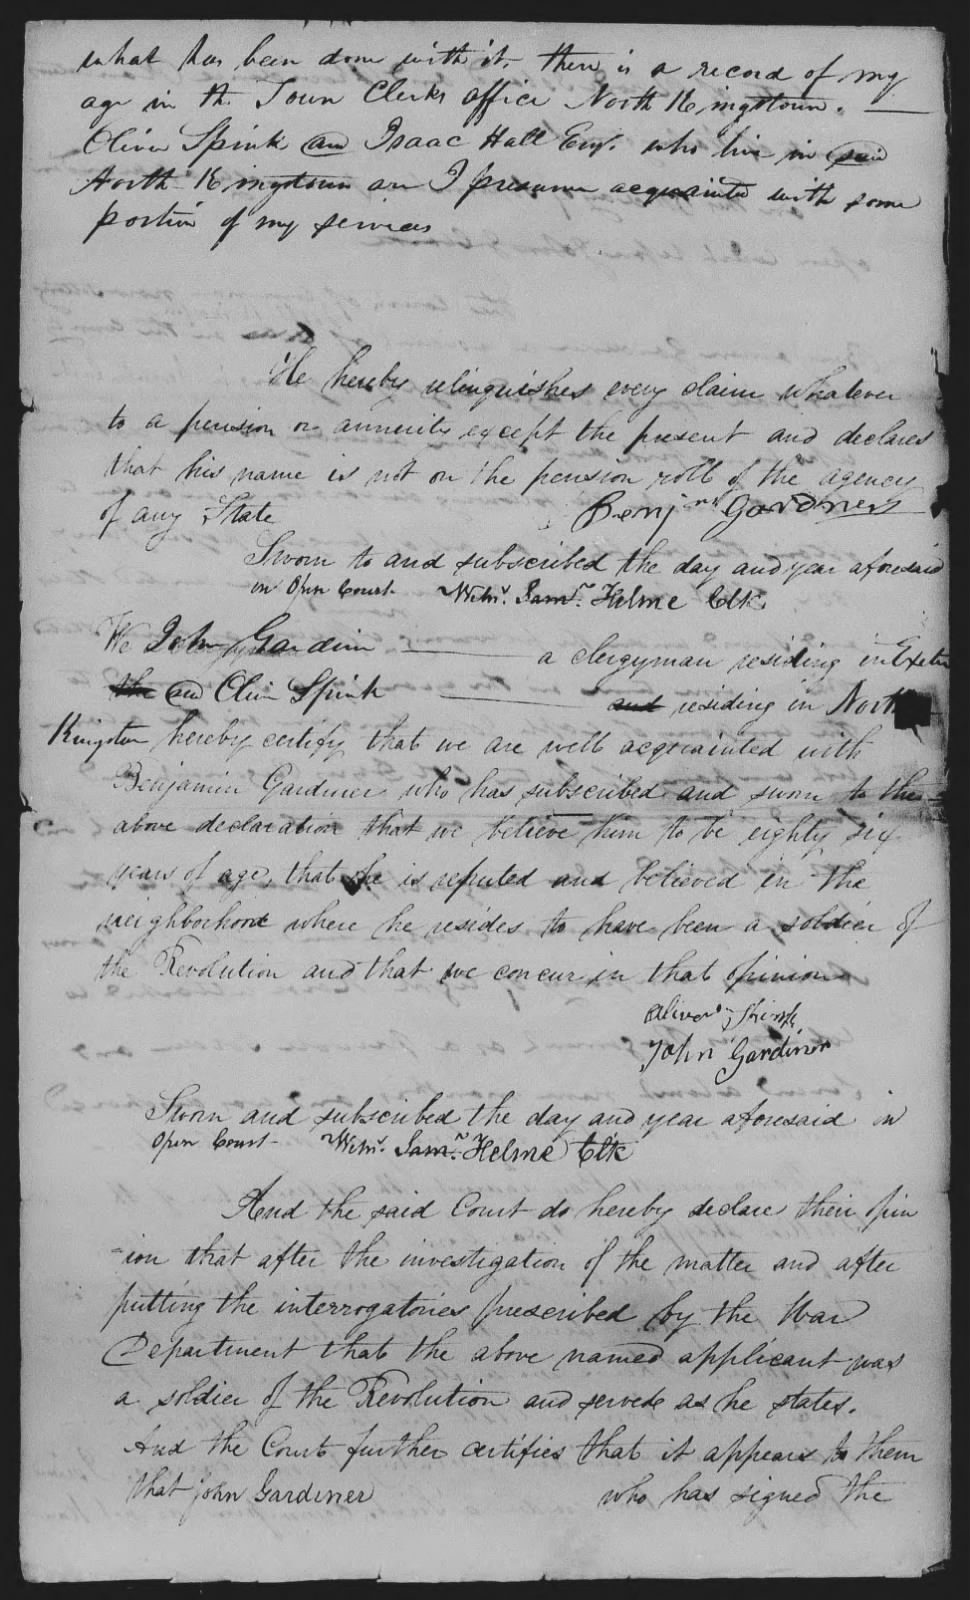 what has been done with it, there is a record of my
age in the Town Clerks office North Kingstown.
Oliver Spink and Isaac Hall Esqs. who live in said
North Kingstown are I presume acquainted with some
portion of my services
He hereby relinquishes every claim whatever
to a pension or annuity except the present and declares
that his name is not on the pension roll of the agency
of any State
Benjmn Gardiner
Sworn to and subscribed the day and year aforesaid
in Open Court Witns. Saml. Helme Clk
We John Gardiner a clergyman residing in Exeter
the and Oliver Spink and residing in North
Kingston hereby certify that we are well acquainted with
Benjamin Gardiner who has subscribed and sworn to the
above declaration that we believe him to be eighty six
years of age, that he is reputed and believed in the
neighborhood where he resides to have been a soldier of
the Revolution and that we concur in that opinion
Oliver Spink
John Gardiner
Sworn and subscribed the day and year aforesaid in
Open Court Witns. Saml. Helme Clk
And the said Court do hereby declare their opin
-ion that after the investigation of the matter and after
putting the interrogatories prescribed by the War
Department that the above named applicant was
a soldier of the Revolution and served as he states.
And the Court further certifies that it appears to them
that John Gardiner who has signed the